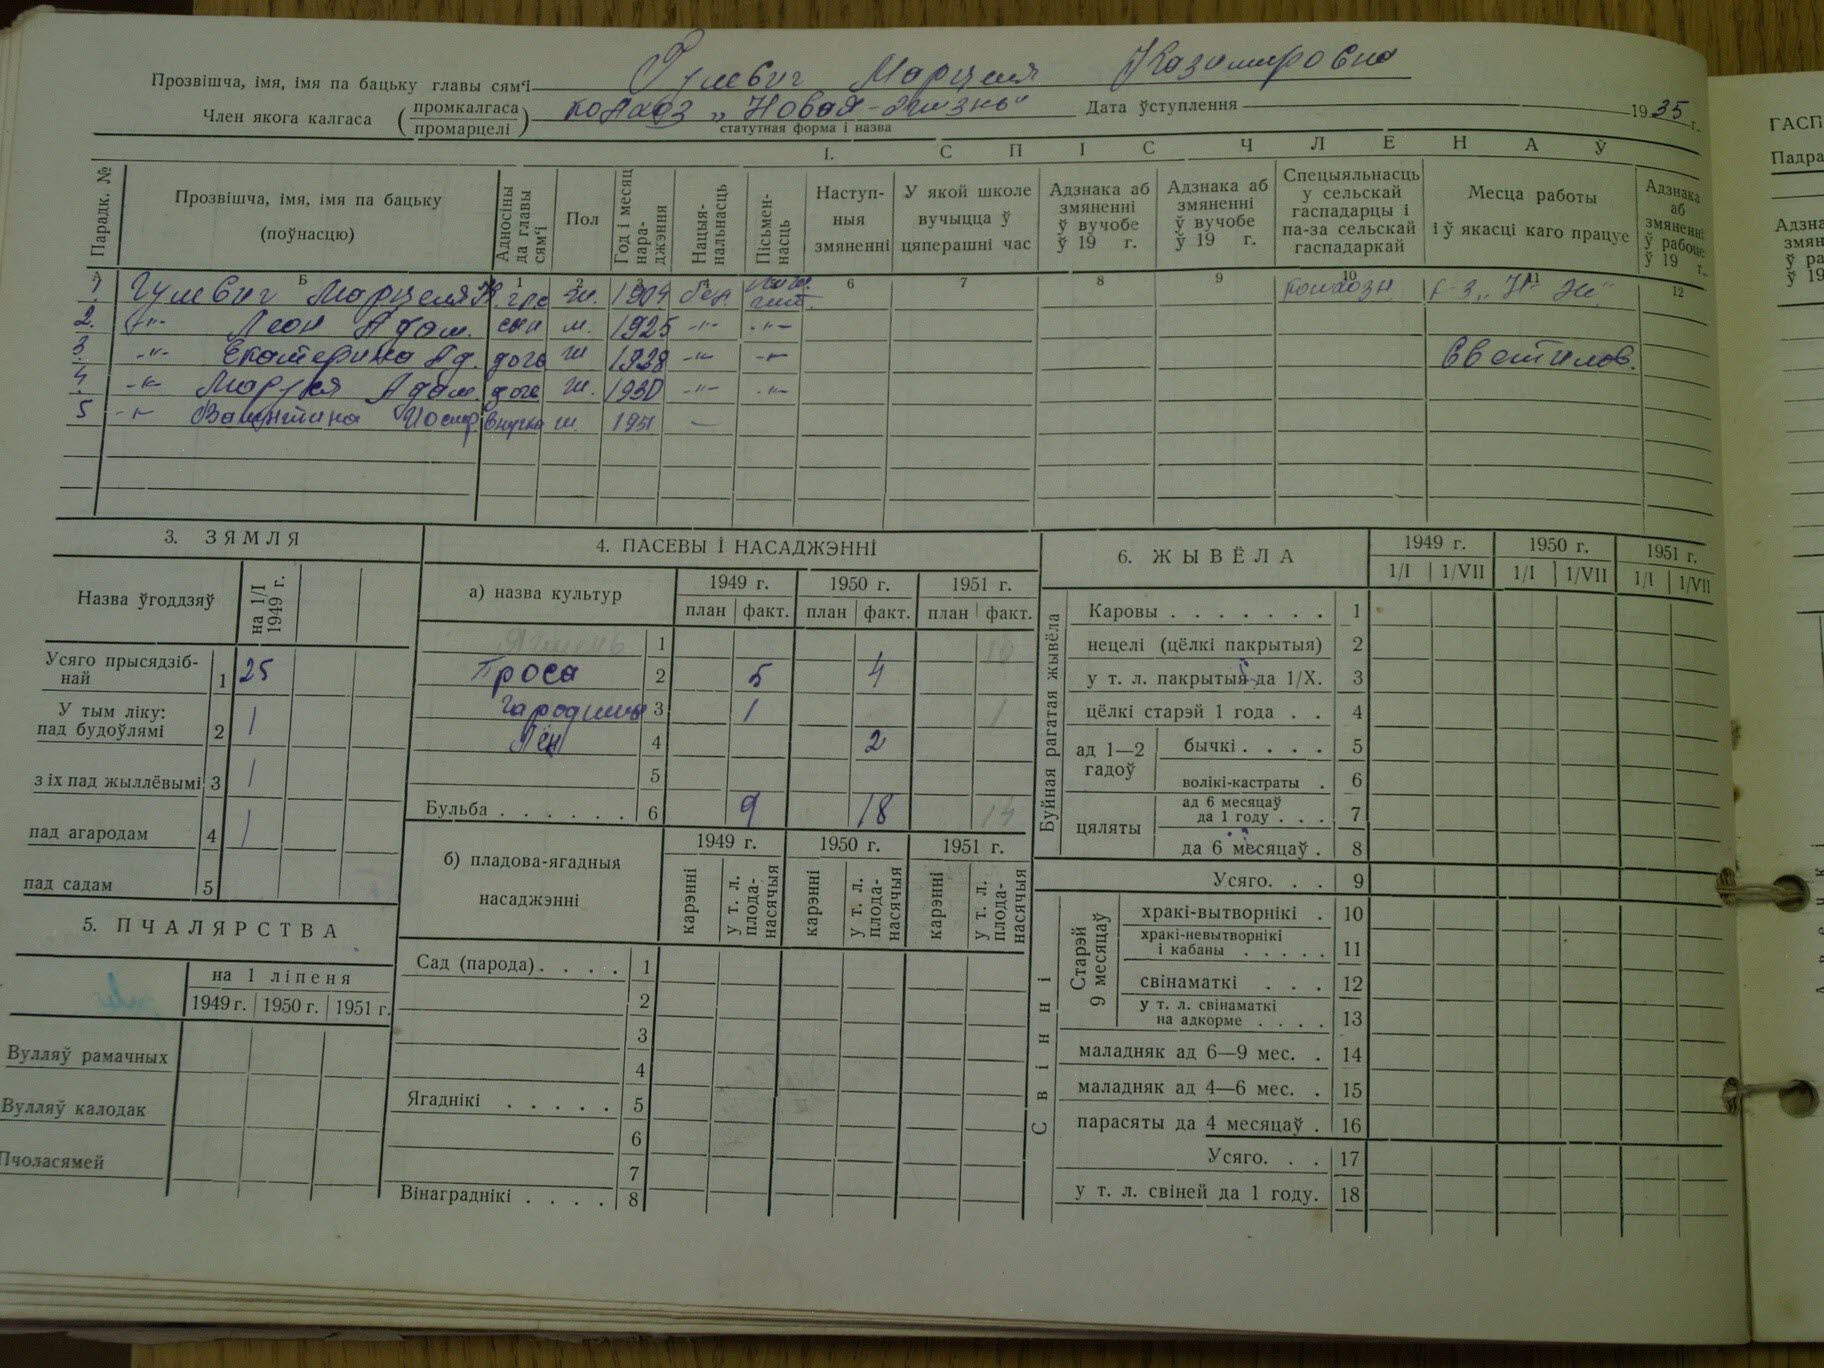 Прозвішча, імя, імя па бацьку главы сям'і Гулевич Марцеля Казимировна
Член якога калгаса (промкалгаса / промарцелі) колхоз „Новая-жизнь“ Дата ўступлення 1935 г.
статутная форма і назва
I. СПІС ЧЛЕНАЎ
Парадк. № Прозвішча, імя, імя па бацьку (поўнасцю) Адносіны да главы сям'і Пол Год і месяц нараджэння Нацыянальнасць Пісьменнасць Наступныя змяненні У якой школе вучыцца ў цяперашні час Адзнака аб змяненні ў вучобе ў 19 г. Адзнака аб змяненні ў вучобе ў 19 г. Спецыяльнасць у сельскай гаспадарцы і па-за сельскай гаспадаркай Месца работы і ў якасці каго працуе Адзнака аб змяненні ў рабоце ў 19 г.
А Б 1 2 3 4 5 6 7 8 9 10 11 12
1. Гулевич Марцеля К. ж. 1904 бел колхозн к-з „Н Ж“
2. -"- Леон Адам. сын м. 1925 -"- -"-
3. -"- Екатерина Ад. доч ж 1928 -"- -"-
4. -"- Марыя Адам. доч ж. 1930 -"- -"-
5 -"- Валентина Иосиф. внучка ж. 1951 —
3. ЗЯМЛЯ
Назва ўгоддзяў на 1/I 1949 г.
Усяго прысядзібнай 1 25
У тым ліку:
пад будоўлямі 2 1
з іх пад жыллёвымі 3 1
пад агародам 4 1
пад садам 5
5. ПЧАЛЯРСТВА
на 1 ліпеня
1949 г. 1950 г. 1951 г.
Вулляў рамачных
Вулляў калодак
Пчоласямей
4. ПАСЕВЫ І НАСАДЖЭННІ
а) назва культур 1949 г. 1950 г. 1951 г.
план факт. план факт. план факт.
Ячмень 1 10
Проса 2 5 4
Гародніна 3 1 1
Лён 4 2
5
Бульба 6 9 18 14
б) пладова-ягадныя насаджэнні 1949 г. 1950 г. 1951 г.
карэнні у т. л. плоданасячыя карэнні у т. л. плоданасячыя карэнні у т. л. плоданасячыя
Сад (парода) 1
2
3
4
Ягаднікі 5
6
7
Вінаграднікі 8
6. ЖЫВЁЛА 1949 г. 1950 г. 1951 г.
1/I 1/VII 1/I 1/VII 1/I 1/VII
Буйная рагатая жывёла
Каровы 1
нецелі (цёлкі пакрытыя) 2
у т. л. пакрытыя да 1/X. 3
цёлкі старэй 1 года 4
ад 1—2 гадоў бычкі 5
волікі-кастраты 6
цяляты ад 6 месяцаў да 1 году 7
да 6 месяцаў 8
Усяго 9
Свінні
Старэй 9 месяцаў
хракі-вытворнікі 10
хракі-невытворнікі і кабаны 11
свінаматкі 12
у т. л. свінаматкі на адкорме 13
маладняк ад 6—9 мес. 14
маладняк ад 4—6 мес. 15
парасяты да 4 месяцаў 16
Усяго 17
у т. л. свіней да 1 году. 18
ГАСП
Падра